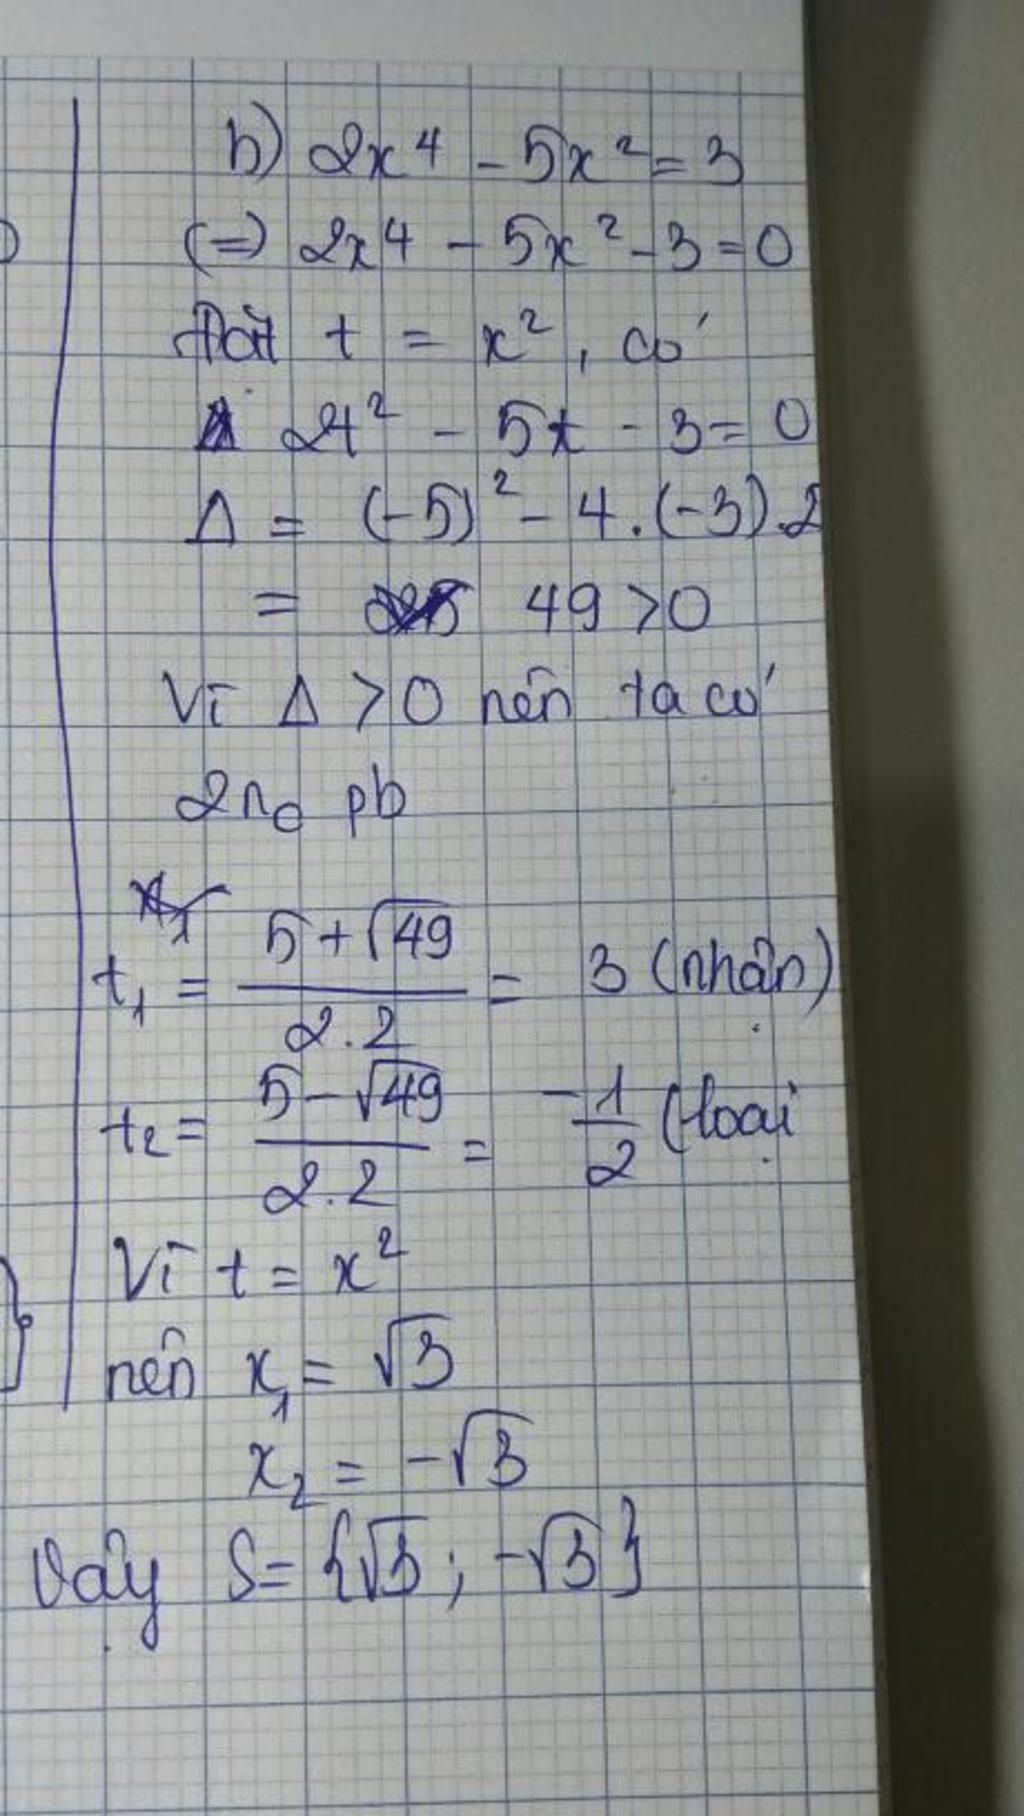 b) 2x⁴ - 5x² = 3
(=) 2x⁴ - 5x² - 3 = 0
Đặt t = x², có
2t² - 5t - 3 = 0
Δ = (-5)² - 4.(-3).2
= 49 > 0
Vì Δ > 0 nên ta có
2no pb
t₁ = (5 + √49)/(2.2) = 3 (nhận)
t₂ = (5 - √49)/(2.2) = -1/2 (loại
Vì t = x²
nên x₁ = √3
x₂ = -√3
Vậy S = {√3; -√3}